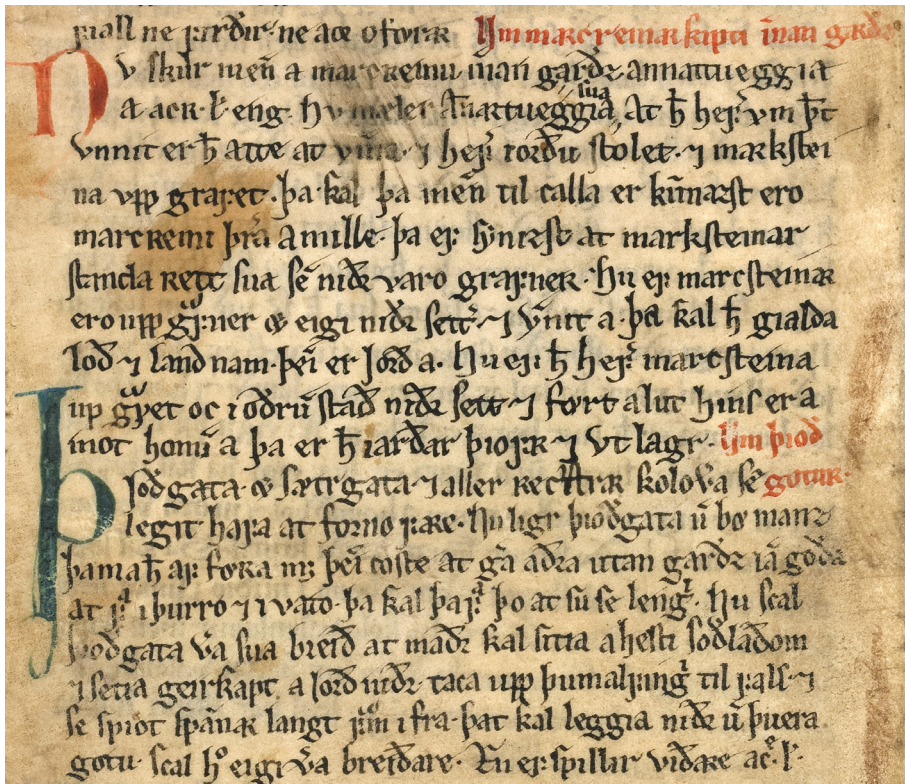 fiall ne firðir ne acc oforꝛ Um marcreinar skipti innan garðꝛ
Nv skilr men̄ a marcreinu innan garðꝛ annattueggia
a acr. eða eng. Nv mæler annartueggia sua At h̄ hefꝛ vm þat
vnnit er h̄ atte at vin̄a. ⁊ hefꝛ iorðu stolet. ⁊ markstei
na vpp grafet. þa skal þa men̄ til calla er kun̄azst ero
marcreini þeira a mille. þa ef synizst at marksteinar
standa rett sua sē niðꝛ varo grafner. Nu ef marcsteinar
ero upp grafner oc eigi niðꝛ setter. ⁊ vnnit a. þa skal h̄ gialda
loð ⁊ land nam. þeī er iorð a. Nu ef h̄ hefꝛ marcsteina
up grafet oc i oðrū stað niðꝛ sett ⁊ fort a lut hins er a
mot honū a þa er h̄ iarðar þiofꝛ ⁊ vtlagr. Um þioð
Þioðgata. oc sætrgata. ⁊ aller recstrar skolo vera sē gotur.
legit hafa at forno fare. Nu ligr þioðgata ū bø manz
þa ma h̄ af fora mꝫ þeī coste at gera aðra utan garðꝛ iam goða
at fara i þurro ⁊ i vato. þa skal þar fara þo at su se lengri. Nu scal
þioðgata vera sua breið at maðꝛ skal sitia a hesti soðlaðom
⁊ setia geirskapt a iorð niðꝛ. taca upp þumalfingri til fals. ⁊
se spiot spannar langt fram i fra. þat skal leggia niðꝛ ū þuera
gotu. scal hon eigi vera breiðare. En er spillir viðare acr. eða.